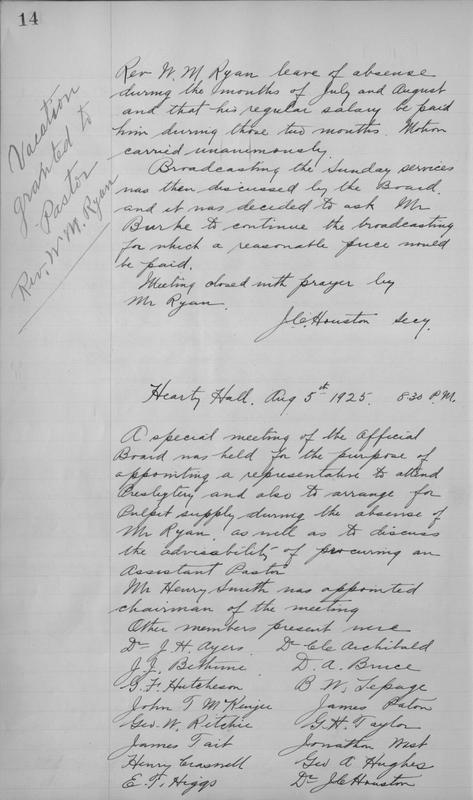 14
Vacation
granted to
Pastor
Rev. W. M. Ryan
Rev W. M Ryan leave of absense
during the months of July and August
and that his regular salary be paid
him during those two months. Motion
carried unanimously.
Broadcasting the Sunday services
was then discussed by the Board.
and it was decided to ask Mr
Burke to continue the broadcasting
for which a reasonable price would
be paid.
Meeting closed with prayer by
Mr Ryan.
J.C. Houston Secy.
Hearty Hall. Aug 5th 1925. 830 P.M.
A special meeting of the Official
Board was held for the purpose of
appointing a representative to attend
Presbytery and also to arrange for
Pulpit supply during the absense of
Mr Ryan, as well as to discuss
the advissability of procuring an
Assistant Pastor
Mr Henry Smith was appointed
chairman of the meeting
Other members present were
Dr J. H. Ayers. Dr Archibald
J. J. Bethune D. A. Bruce
G. F. Hutcheson B W. Lepage
John T McKenzie James Paton
Geo. W. Ritchie G. H. Taylor
James Tait Jonathon West
Henry Geo A Hughes
E. T. Higgs Dr J C Houston